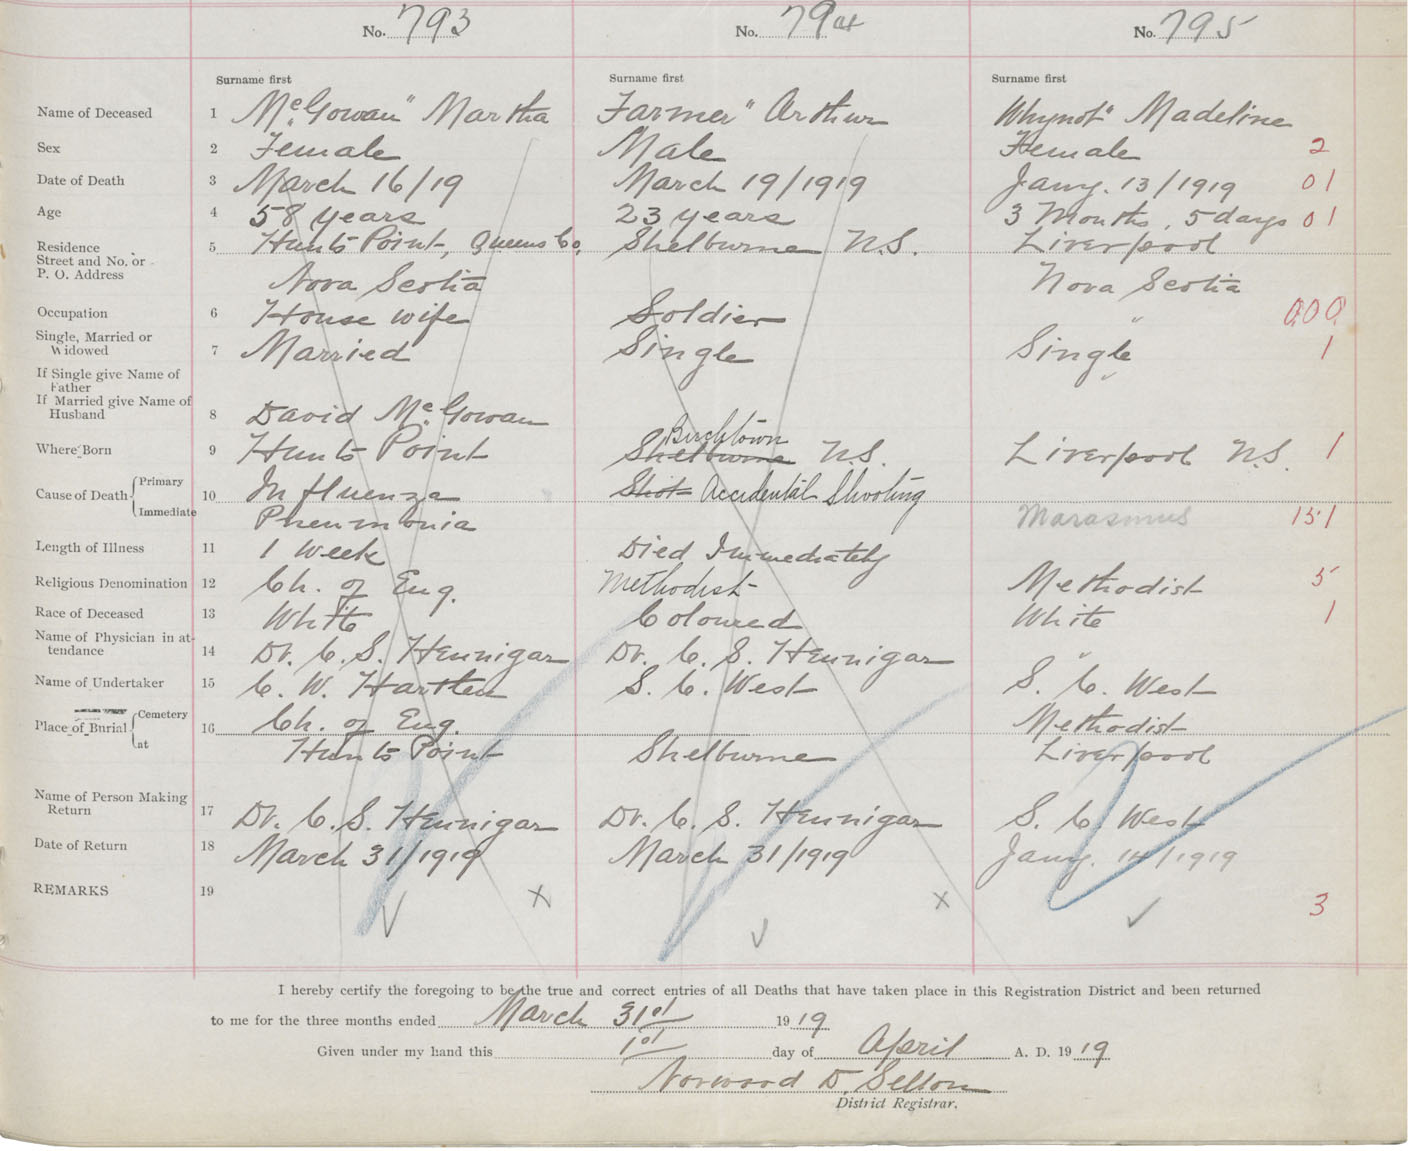 No. 793 No. 794 No. 795
Surname first Surname first Surname first
Name of Deceased 1 McGowan" Martha Farmer" Arthur Whynot" Madeline
Sex 2 Female Male Female 2
Date of Death 3 March 16/19 March 19/1919 Jany. 13/1919 01
Age 4 58 years 23 years 3 Months, 5 days 01
Residence
Street and No. or 5 Hunts Point, Queens Co. Shelburne N.S. Liverpool
P. O. Address Nova Scotia Nova Scotia
Occupation 6 House wife Soldier " 000
Single, Married or
Widowed 7 Married Single Single 1
If Single give Name of
Father
If Married give Name of
Husband 8 David McGowan
Birchtown
Where Born 9 Hunts Point Shelburne N.S. Liverpool N.S. 1
Cause of Death Primary 10 Influenza Shot Accidental Shooting
Immediate Pneumonia Marasmus 151
Length of Illness 11 1 week Died Immediately
Religious Denomination 12 Ch. of Eng. Methodist Methodist 5
Race of Deceased 13 White Coloured White 1
Name of Physician in at-
tendance 14 Dr. C. S. Hennigar Dr. C. S. Hennigar "
Name of Undertaker 15 C. W. Hartlen S. C. West S. C. West
Place of Burial Cemetery 16 Ch. of Eng. Methodist
at Hunts Point Shelburne Liverpool
Name of Person Making
Return 17 Dr. C. S. Hennigar Dr. C. S. Hennigar S. C. West
Date of Return 18 March 31/1919 March 31/1919 Jany. 14/1919
REMARKS 19 x x 3
I hereby certify the foregoing to be the true and correct entries of all Deaths that have taken place in this Registration District and been returned
to me for the three months ended March 31st 1919
Given under my hand this 1st day of April A. D. 1919
Norwood D.
District Registrar.